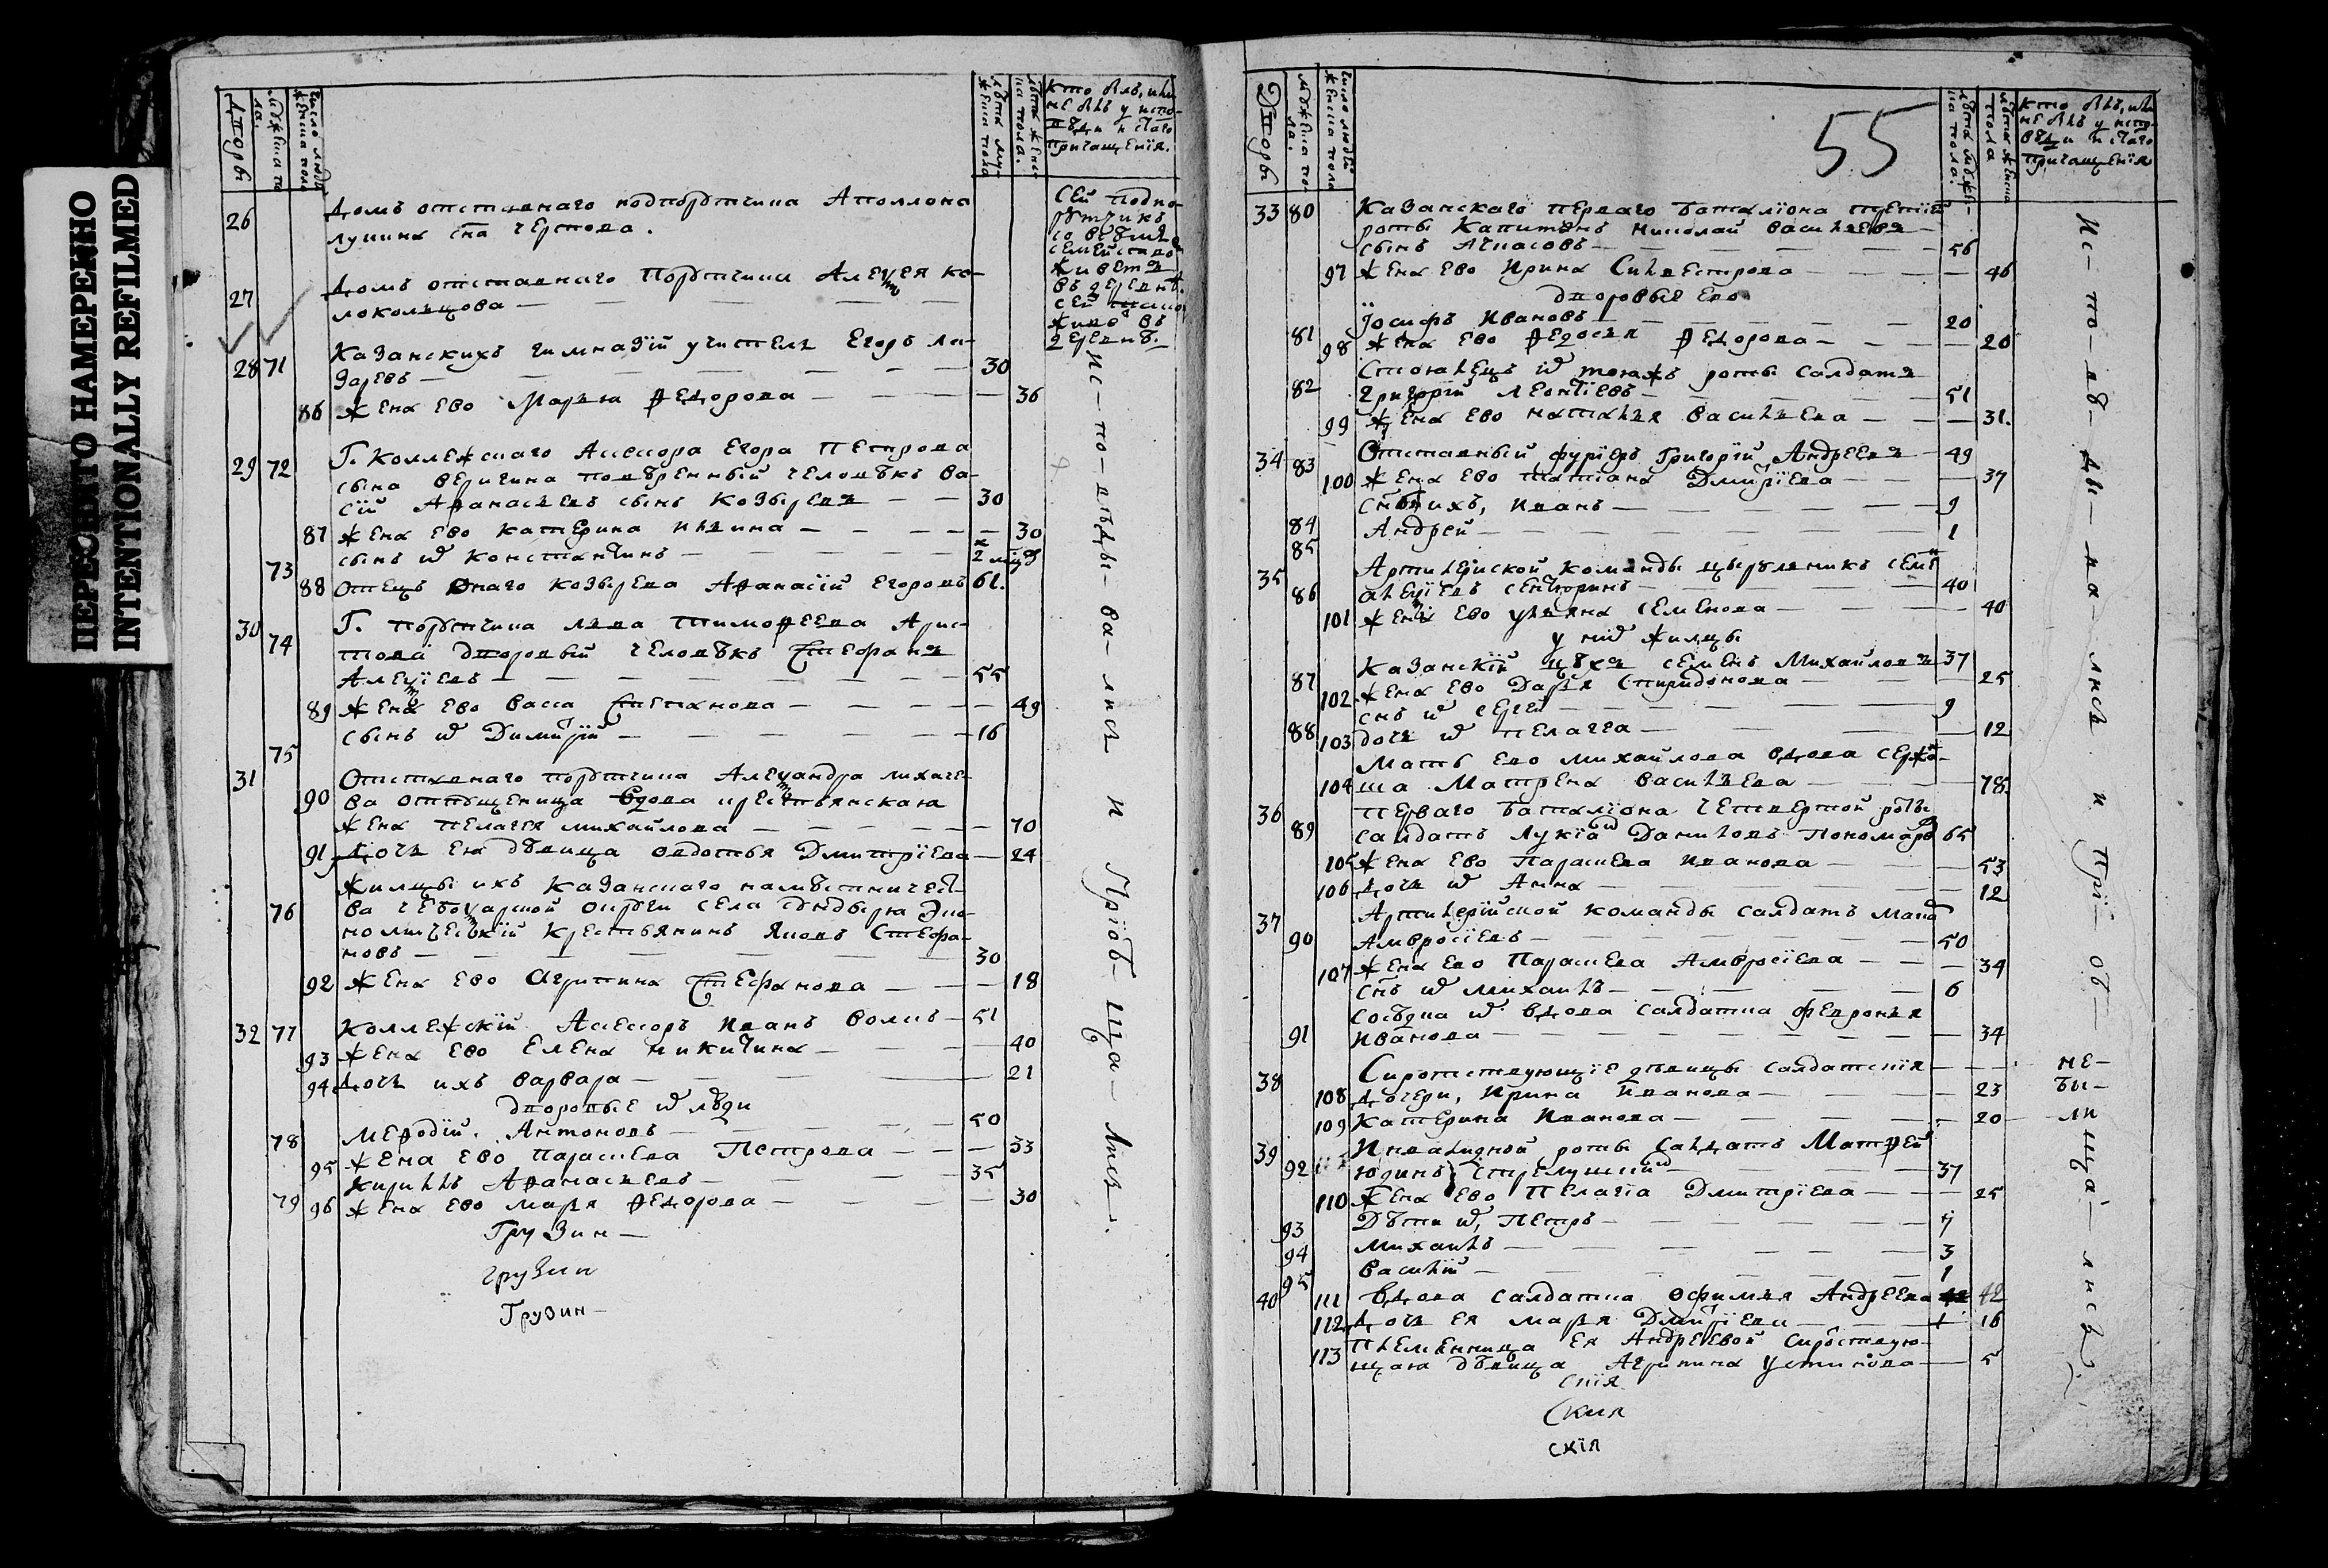 ПЕРЕСНЯТО НАМЕРЕННО
INTENTIONALLY REFILMED
Дворы
мужеска по
ла.
число людей
женска пола
лѣта му-
жеска пола
лѣта женс-
ка пола.
Кто былъ, или
не былъ у испо-
вѣди и стаго
причащенїя.
26
Домъ отставнаго подпорутчика Аполлона
Лукина сна Чернова.
Сей подпо-
рутчикъ
со всѣмъ
семействомъ
живетъ
въ деревнѣ.
27
Домъ отставнаго Порутчика Алеѯея ко-
локольцова —
живо въ
деревнѣ.
28 71 Казанскихъ гимназїй учитель Егоръ ла-
заревъ — 30
86 жена ево Марья Ѳедорова — 36
29 72 Г. Коллежскаго Ассесора Егора Петрова
сына веригина повѣренный человѣкъ Ва-
сїй Аѳанасьевъ сынъ Козыревъ — 30
87 жена ево катерина ильина — 30
73 сынъ ѿ Константинъ — 2
88 отецъ онаго козырева Аѳанасїй Егоровъ 61.
30 74 Г. порутчика льва Тимоѳеева Арис-
това дворовый человѣкъ Стефанъ
Алеѯїевъ — 55
89 жена ево васса Степанова — 49
75 сынъ ѿ Димитрїй — 16
31
90 Отставнаго порутчика Алеѯандра лихаче-
ва отпущеница вдова крестьянская
жена пелагея михайлова — 70
91 Дочь ея дѣвица овдотья Дмитрїева — 24
жилцы ихъ Казанскаго намѣстничест-
76 ва чебоѯарской округи села Сундырья Эко-
номическїй крестьянинъ Яковъ Стефа-
новъ — 30
92 жена ево Агрипина Стефанова — 18
32 77 Коллежскїй Ассесоръ иванъ волкъ — 51
93 жена ево Елена никитина — 40
94 Дочь ихъ варвара — 21
дворовые ѿ люди
78 Меѳодїй Антоновъ — 50
95 жена ево параскева Петрова — 33
79 Кирилъ Аѳанасьевъ — 35
96 жена ево марья Ѳедорова — 30
Ис-по-вѣды-ва-лись и Прїоб-ща-лись.
Грузин—
грузин
Грузин—
55
Дворы
мужеска по-
ла.
число людей
женска пола
лѣта мужес-
ка пола.
лѣта женска
пола
Кто былъ, или
не былъ у испо-
вѣди и стаго
причащенїя
33 80 Казанскаго перваго баталїона третїей
роты Капитанъ николай васильевъ
сынъ Атласовъ — 56
97 жена ево Ирина Сильвестрова — 46
дворовые ево
81 Їосифъ ивановъ — 20
98 жена ево Ѳедосья Ѳедорова — 20
Стоялецъ ѿ тояжъ роты солдатъ
82 Григорїй леонтїевъ — 51
99 жена ево наталья васильева — 31.
34 83 Отставный фурїеръ Григорїй Андреевъ — 49
100 жена ево татїана Дмитрїева — 37
84 Снъ ихъ, иванъ — 9
85 Андрей — 1
35 86 Артилерїской команды цырульникъ семенъ
алеѯїевъ сентюринъ — 40
101 жена ево ульяна семенова — 40
у нихъ жилцы
87 Казанскїй цѣхъ семенъ Михайловъ 37
102 жена ево Дарья спиридонова — 25
88 снъ ѿ сергей — 9
103 дочь ѿ пелагея — 12
Мать ево михайлова вдова сержан-
104 ша Матрена васильева — 78.
36 89 перваго баталїона четвертой роты
салдатъ лукїанъ Даниловъ Пономаревъ 65
105 жена ево Параскева иванова — 53
106 дочь ѿ Анна — 12
37 90 Артилерїйской команды салдатъ
Амвросїевъ — 50
107 жена ево Параскева Амвросїева — 34
снъ ѿ михаилъ — 6
сосѣдка ѿ вдова салдатка февронья
91 иванова — 34
38 Сиротствующїе дѣвицы салдатскїя
108 дочери, ирина иванова — 23
109 катерина иванова — 20
не-
бы-
ли
39 92 Инвалидной роты салдатъ Матѳей
юдинъ — 37
110 жена ево Пелагїа Дмитрїева — 25
93 Дѣти ѿ, Петръ —
94 михаилъ — 3
95 василїй — 1
40 111 вдова салдатка офимья Андреева 42
112 дочь ея марья Дмитрїева — 16
113 племянница ея Андреевой сиротствую-
щая дѣвица Агрипина устинова — 5
Ис-по-вѣ-ды-ва-лись и Прї-об-ща-лись
скїя
ския
скїя